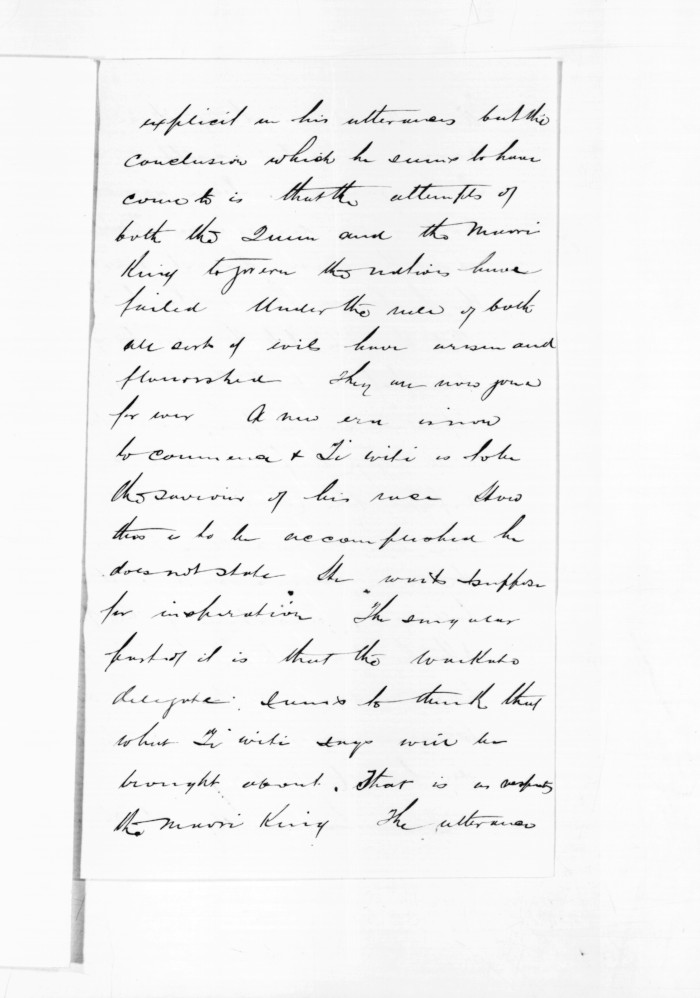 explicit in his utterances but the
conclusion which he seems to have
come to is that the attempts of
both the Queen and the Maori
King to govern the natives have
failed Under the rule of both
all sorts of evils have arisen and
flourished They are now gone
for ever A new era is now
to commence & Te Witi is to be
the saviour of his race How
this is to be accomplished he
does not state He waits I suppose
for inspiration The singular
part of it is that the Waikato
delegate seems to think that
what Te Witi says will be
brought about. That is as respects
the Maori King The utterances